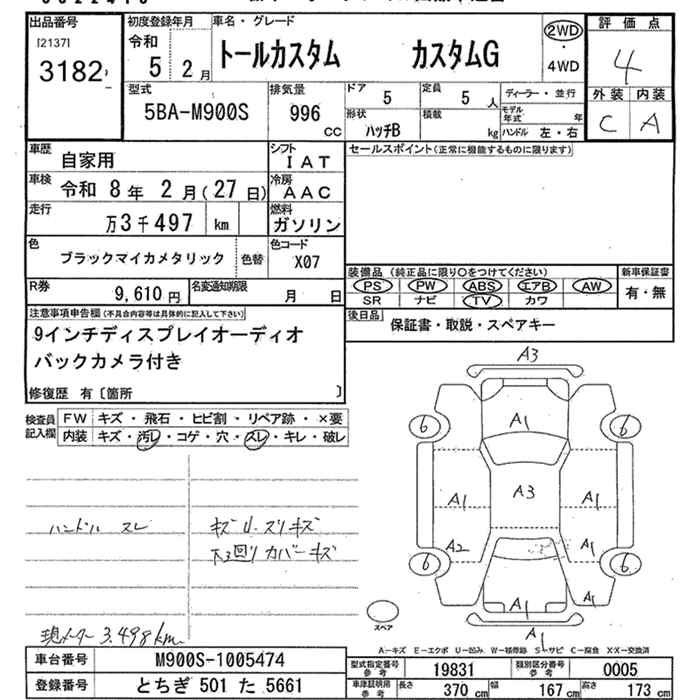 出品番号 初度登録年月 車名・グレード 評価点
[2137] 令和 トールカスタム カスタムG 2WD
3182 5 2月 ・ 4WD 4
型式 排気量 ドア 5 定員 5人 ディーラー・並行 外装 内装
5BA-M900S 996 cc 形状 ハッチB 積載 kg モデル年式 年 C A
ハンドル 左・右
車歴 自家用 シフト IAT セールスポイント(正常に機能するものに限ります)
車検 令和 8年 2月(27日) 冷房 AAC
走行 万3千497 km 燃料 ガソリン
色 ブラックマイカメタリック 色替 色コード X07
装備品 (純正品に限り○をつけてください) 新車保証書
R券 9,610円 名変通知期限 月 日 PS PW ABS エアB AW 有・無
SR ナビ TV カワ
注意事項申告欄(不具合内容等は具体的に記入して下さい) 後日品 保証書・取説・スペアキー
9インチディスプレイオーディオ
バックカメラ付き
修復歴 有〔箇所 〕
検査員記入欄 FW キズ・飛石・ヒビ割・リペア跡・×要
内装 キズ・汚レ・コゲ・穴・スレ・キレ・破レ
A3
6 A1 6
A1 A3 A1
A2 A1
6 6
A1 A1
A1
ハンドル スレ キズ U. スリキズ
下回り カバーキズ
現メーター 3.498km
スペア
A-キズ E-エクボ U-凹み W-補修跡 S-サビ C-腐食 X.XX-交換済
車台番号 M900S-1005474 型式指定番号 参考 19831 類別区分番号 参考 0005
登録番号 とちぎ 501 た 5661 車庫証明用 参考 長さ 370cm 幅 167cm 高さ 173cm